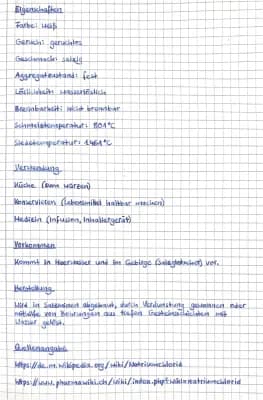 Eigenschaften
Farbe: weiß
Geruch: geruchlos
Geschmack: salzig
Aggregatzustand: fest
Löslichkeit: wasserlöslich
Brennbarkeit: nicht brennbar
Schmelztemperatur: 801°C
Siedetemperatur: 1461°C
Verwendung
Küche (zum würzen)
Konservieren (Lebensmittel haltbar machen)
Medizin (Infusion, Inhaliergerät)
Vorkommen
Kommt in Meerwasser und im Gebirge vor.
Herstellung
Wird in Salzminen abgebaut, durch Verdunstung gewonnen oder
mithilfe von Bohrungen aus tiefen Gesteinsschichten mit
Wasser gelöst.
Quellenangabe
https://de.m.wikipedia.org/wiki/Natriumchlorid
https://www.pharmawiki.ch/wiki/index.php?wiki=natriumchlorid